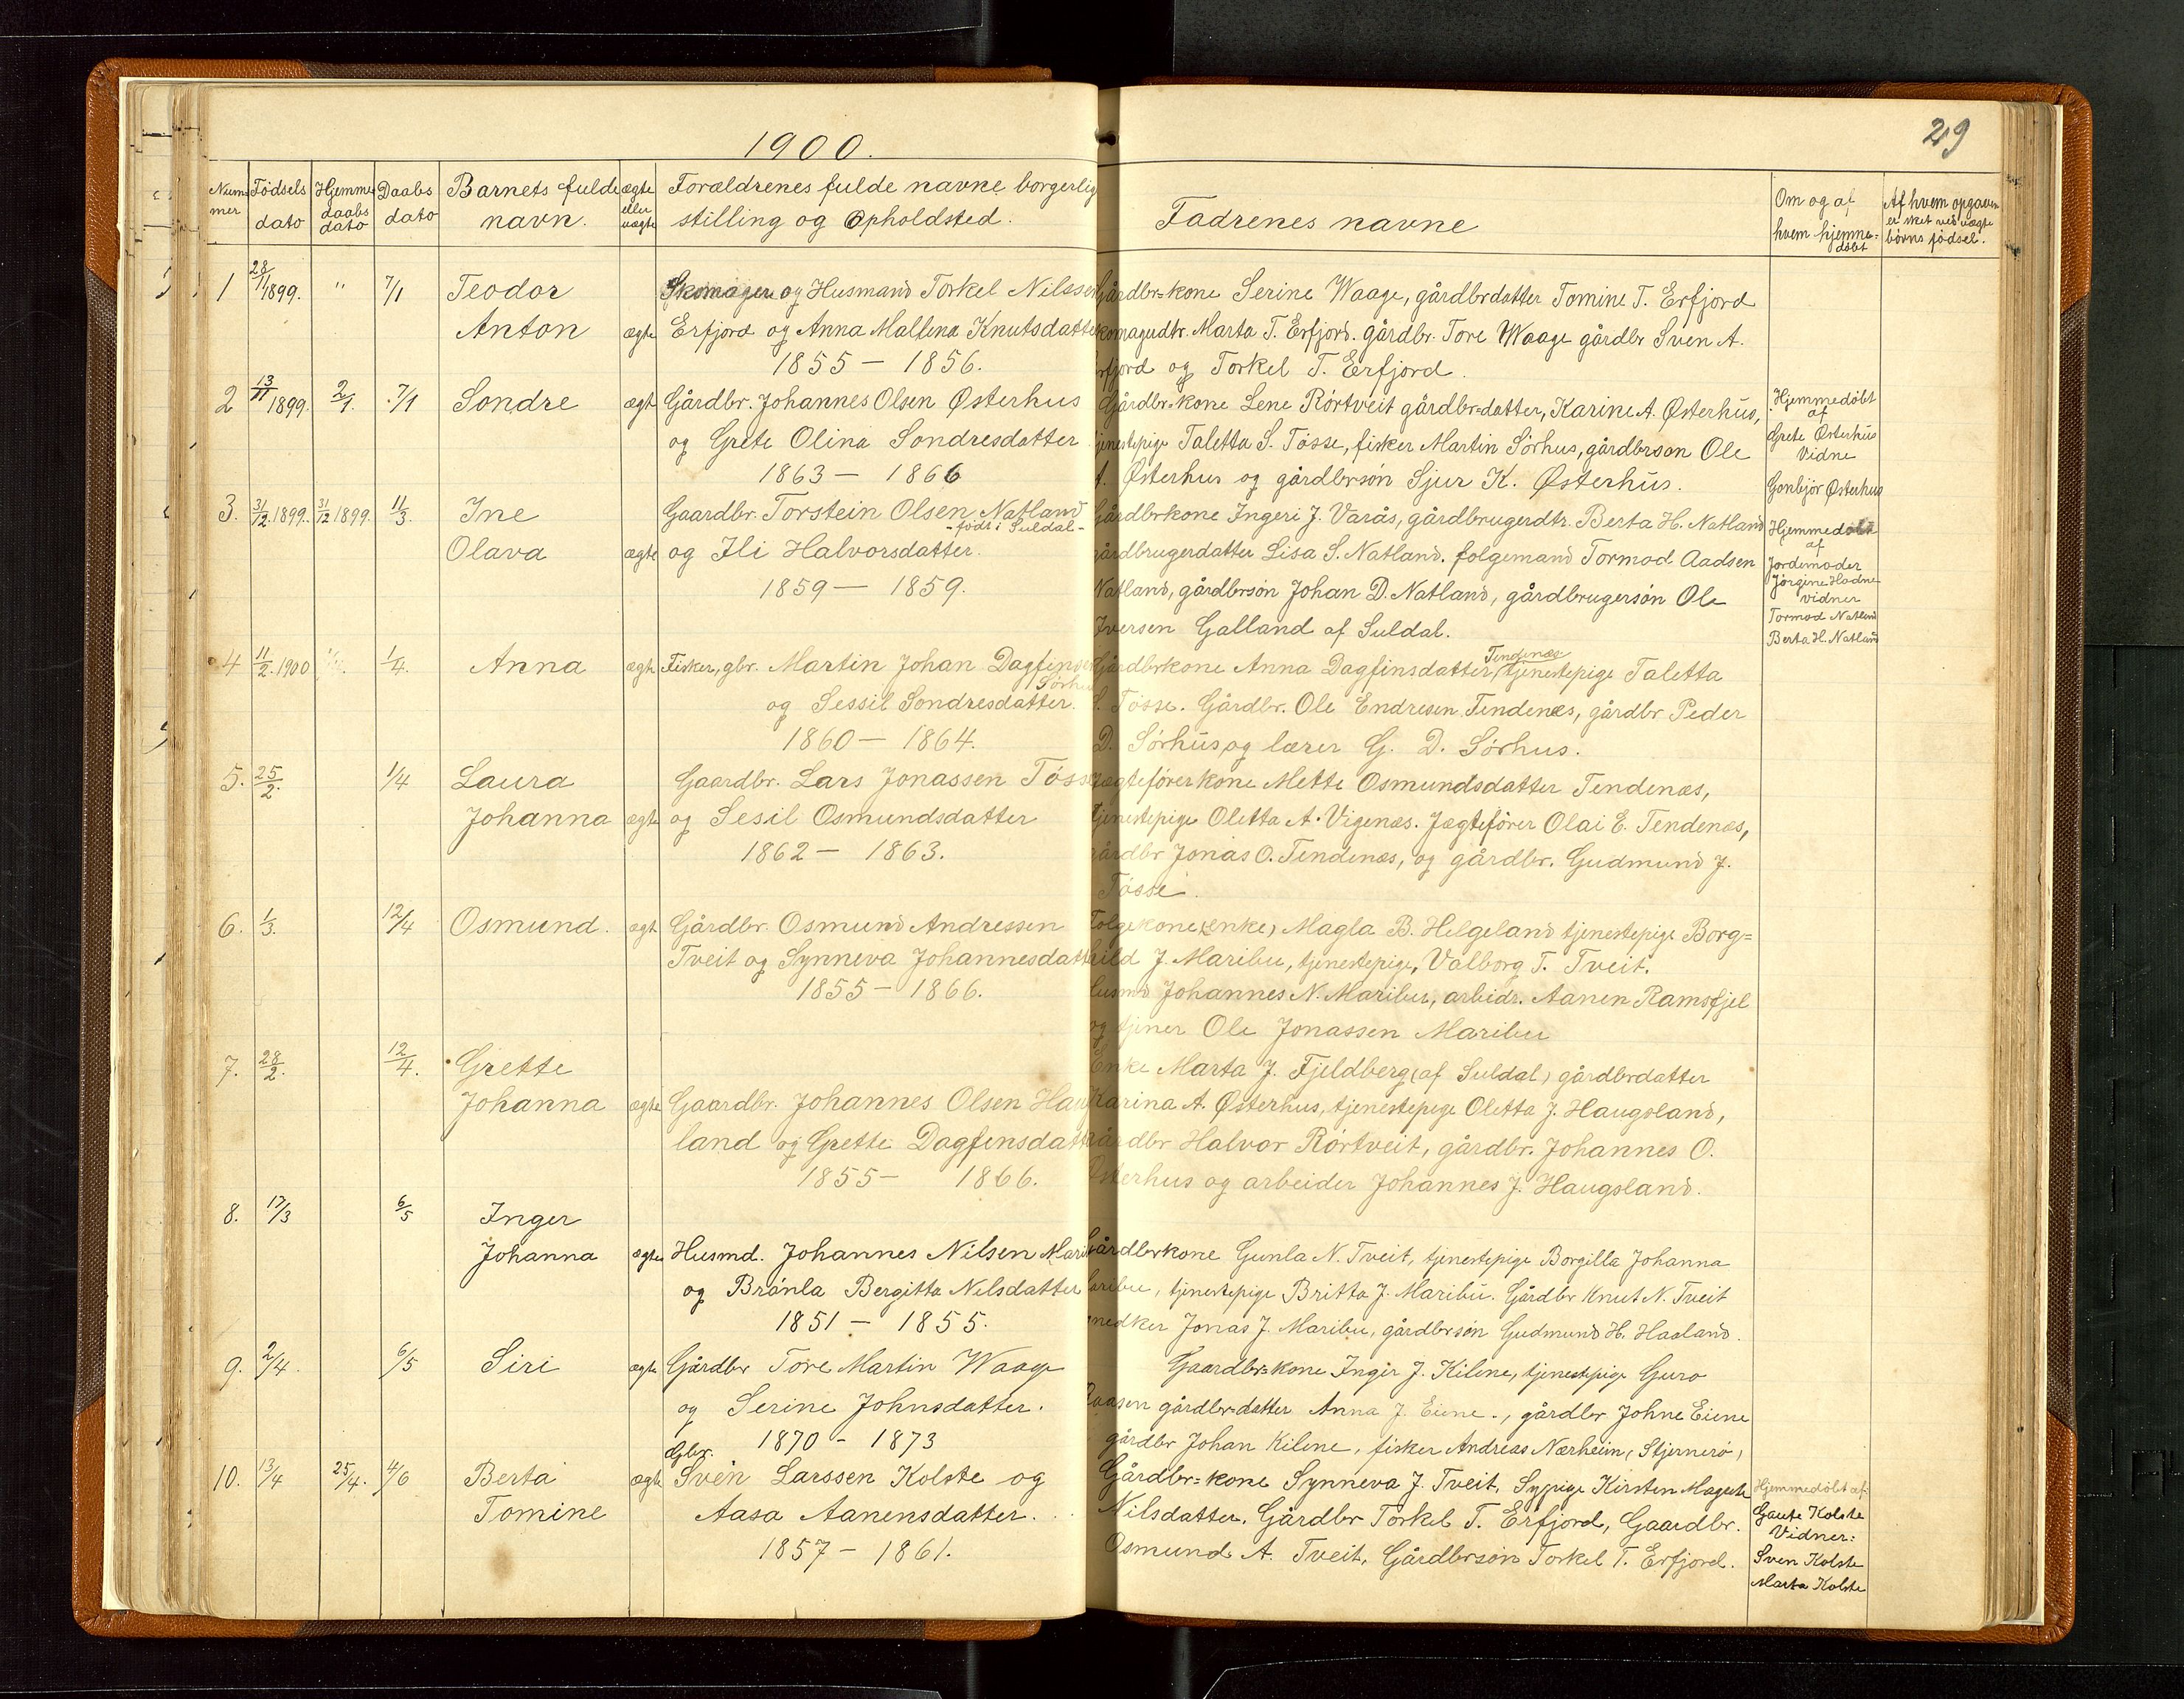 1900.
29
Nummer
Fødsels dato
Hjemme daabs dato
Daabs dato
Barnets fulde navn.
ægte eller uægte
Forældrenes fulde navne borgerlig stilling og Opholdsted.
Fadrenes navne
Om og af hvem hjemme=døbt
Af hvem opgaven er sket ved uægte børns fødsel.
1 28/11 1899. " 7/1 Teodor Anton ægte
Skomager og Husmand Torkel Nilssen
Erfjord og Anna Mallena Knutsdatter
1855 – 1856.
Gårdbr=kone Serine Waage, gårdbrdatter Tomine T. Erfjord
skomagerdtr. Marta T. Erfjord. gårdbr. Tore Waage gårdbr Sven A.
Erfjord og Torkel T. Erfjord.
2 13/11 1899. 2/1. 7/1 Sondre ægte
Gårdbr. Johannes Olsen Østerhus
og Grete Olina Sondresdatter
1863 – 1866
Gårdbr=kone Lene Rörtveit gårdbr=datter, Karine A. Østerhus,
tjenestepige Taletta S. Tösse, fisker Martin Sörhus, gårdbrson Ole
A. Østerhus og gårdbrsön Sjur K. Østerhus.
Hjemmedöbt
af
Grete Østerhus
Vidne
Gonbjör Østerhus
3. 31/12 1899. 31/12 1899. 11/3. Ine Olava ægte
Gaardbr. Torstein Olsen Natland
- född i Suldal -
og Ili Halvorsdatter.
1859 – 1859.
Gårdbrkone Ingeri J. Varås, gårdbrugerdtr. Berta H. Natland
gårdbrugerdatter Lisa S. Natland. folgemand Tormod Aadsen
Natland, gårdbrsön Johan D. Natland, gårdbrugersön Ole
Iversen Galland af Suldal.
Hjemmedöbt
af
Jordemoder
Jörgine Hodne
vidner
Tormod Natland
Berta H. Natland
4 11/2. 1900 1/4. Anna ægte
Fisker, gbr. Martin Johan Dagfinsen
Sörhus
og Sessil Sondresdatter.
1860 – 1864.
Gårdbrkone Anna Dagfinsdatter, Tendenæs tjenestepige Taletta
S. Tösse. Gårdbr. Ole Endresen Tendenes, gårdbr Peder
D. Sörhus, og lærer G. D. Sörhus.
5. 25/2. 1/4 Laura Johanna ægte
Gaardbr. Lars Jonassen Tösse
og Sesil Osmundsdatter
1862 – 1863.
Jægteförerkone Mette Osmundsdatter Tendenæs,
tjenestepige Oletta A. Vigenæs. Jægteförer Olai E. Tendenæs,
gårdbr Jonas O. Tendenæs, og gårdbr. Gudmund J.
Tösse.
6. 1/3. 12/4 Osmund. ægte
Gårdbr. Osmund Andressen
Tveit og Synneva Johannesdatter
1855 – 1866.
Folgekone (enke) Magla B. Helgeland tjenestepige Borg=
hild J. Maribu, tjenestepige, Valborg T. Tveit.
Husmd Johannes N. Maribu, arbidr. Aanen Ramsfjel
og tjener Ole Jonassen Maribu
7. 28/2. 12/4. Grette Johanna ægte
Gaardbr. Johannes Olsen Haugs
land og Grette Dagfinsdatter
1855 – 1866.
Enke Marta J. Fjeldberg (af Suldal) gårdbrdatter
Karina A. Østerhus, tjenestepige Oletta J. Haugsland,
gårdbr Halvor Rörtveit, gårdbr. Johannes O.
Østerhus og arbeider Johannes J. Haugsland.
8. 17/3 6/5 Inger Johanna ægte
Husmd. Johannes Nilsen Maribu
og Brånla Bergitta Nilsdatter
1851 – 1855.
Gårdbrkone Gunla N. Tveit, tjenestepige Borgilla Johanna
Maribu, tjenestepige Britta J. Maribu. Gårdbr Knut N. Tveit
snedker Jonas J. Maribu, gårdbrsön Gudmund H. Haaland.
9. 2/4. 6/5 Siri ægte
Gårdbr Tore Martin Waage
og Serine Johnsdatter.
1870 – 1873
Gaardbr=kone Inger J. Kilene, tjenestepige Guro
Aaasen gårdbr=datter Anna J. Eiene., gårdbr Johne Eiene
gårdbr Johan Kilene, fisker Andreas Nærheim, (Stjernerö)
10. 13/4 25/4. 4/6 Berta Tomine ægte
Gbr.
Svèn Larssen Kolste og
Aasa Aanensdatter.
1857 – 1861.
Gårdbr=kone Synneva J. Tveit, Sypige Kirsten Magrete
Nilsdatter, Gårdbr Torkel T. Erfjord, Gaardbr.
Osmund A. Tveit, Gårdbrsön Torkel T. Erfjord.
Hjemmedöbt af
Gaute Kolste
Vidner:
Sven Kolste
Marta Kolste